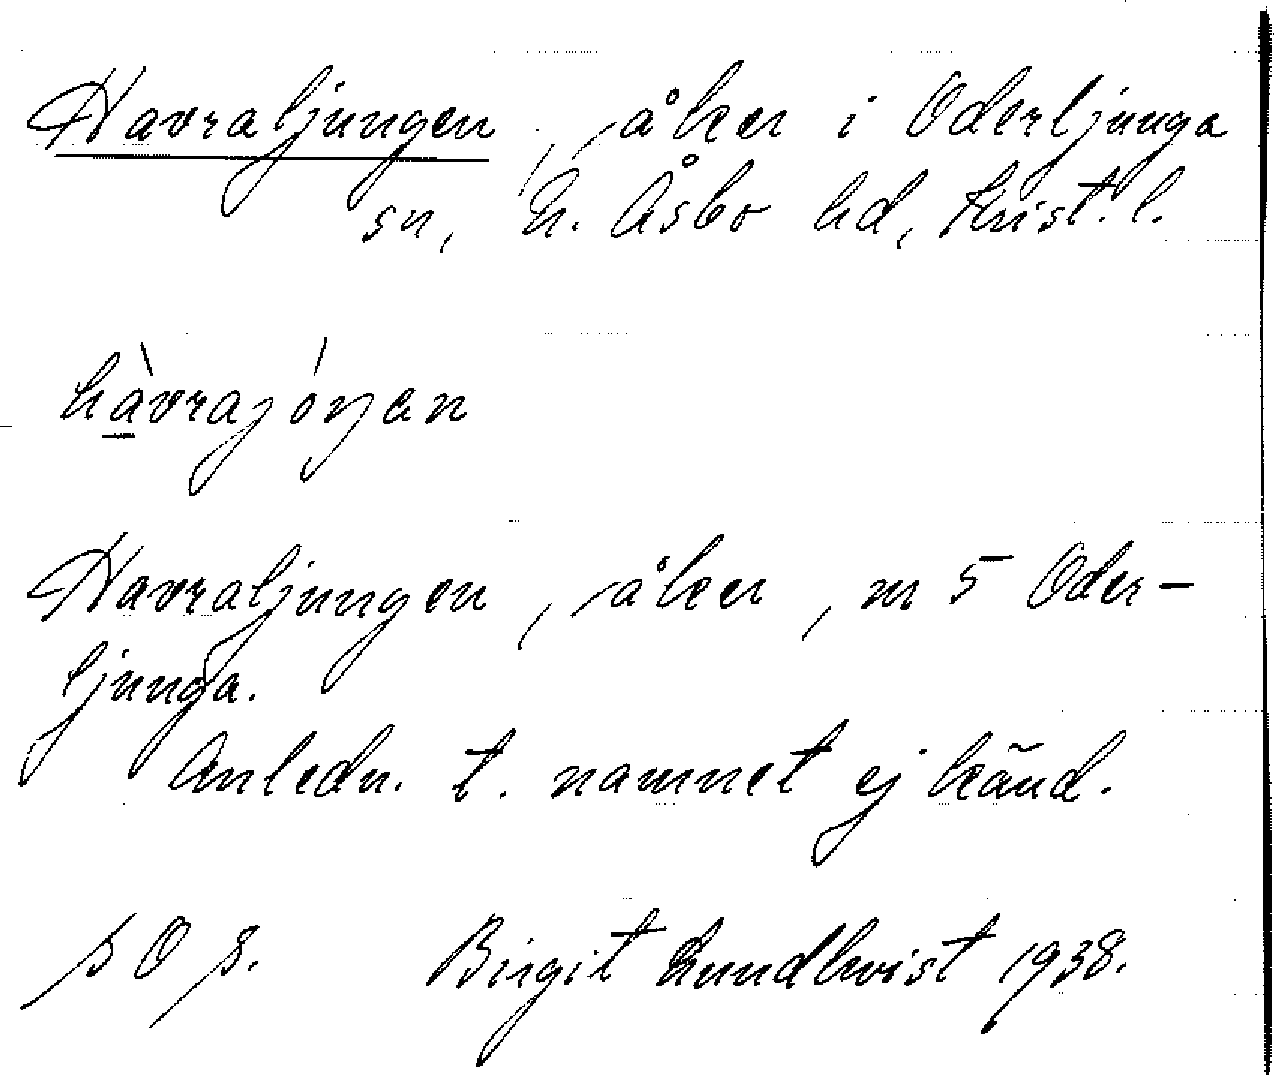 Havraljungen, åker i Oderljunga
sn, N. Åsbo hd, Krist. l.
hàvrajóŋan
Havraljungen, åker, nr 5 Oder-
ljunga.
Anledn. t. namnet ej känd.
Birgit Lundkvist 1938.